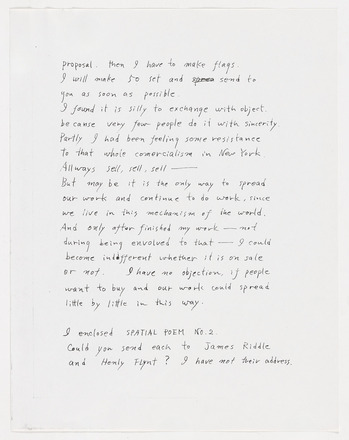 proposal. then I have to make flags.
I will make 50 set and send to
you as soon as possible.
I found it is silly to exchange with object.
because very few people do it with sincerity
Partly I had been feeling some resistance
to that whole comercialism in New York
Allways sell, sell, sell —
But may be it is the only way to spread
our work and continue to do work, since
we live in this mechanism of the world.
And only after finished my work — not
during being envolved to that — I could
become indifferent whether it is on sale
or not. I have no objection, if people
want to buy and our work could spread
little by little in this way.
I enclosed SPATIAL POEM NO.2.
Could you send each to James Riddle
and Henly Flynt? I have not their address.